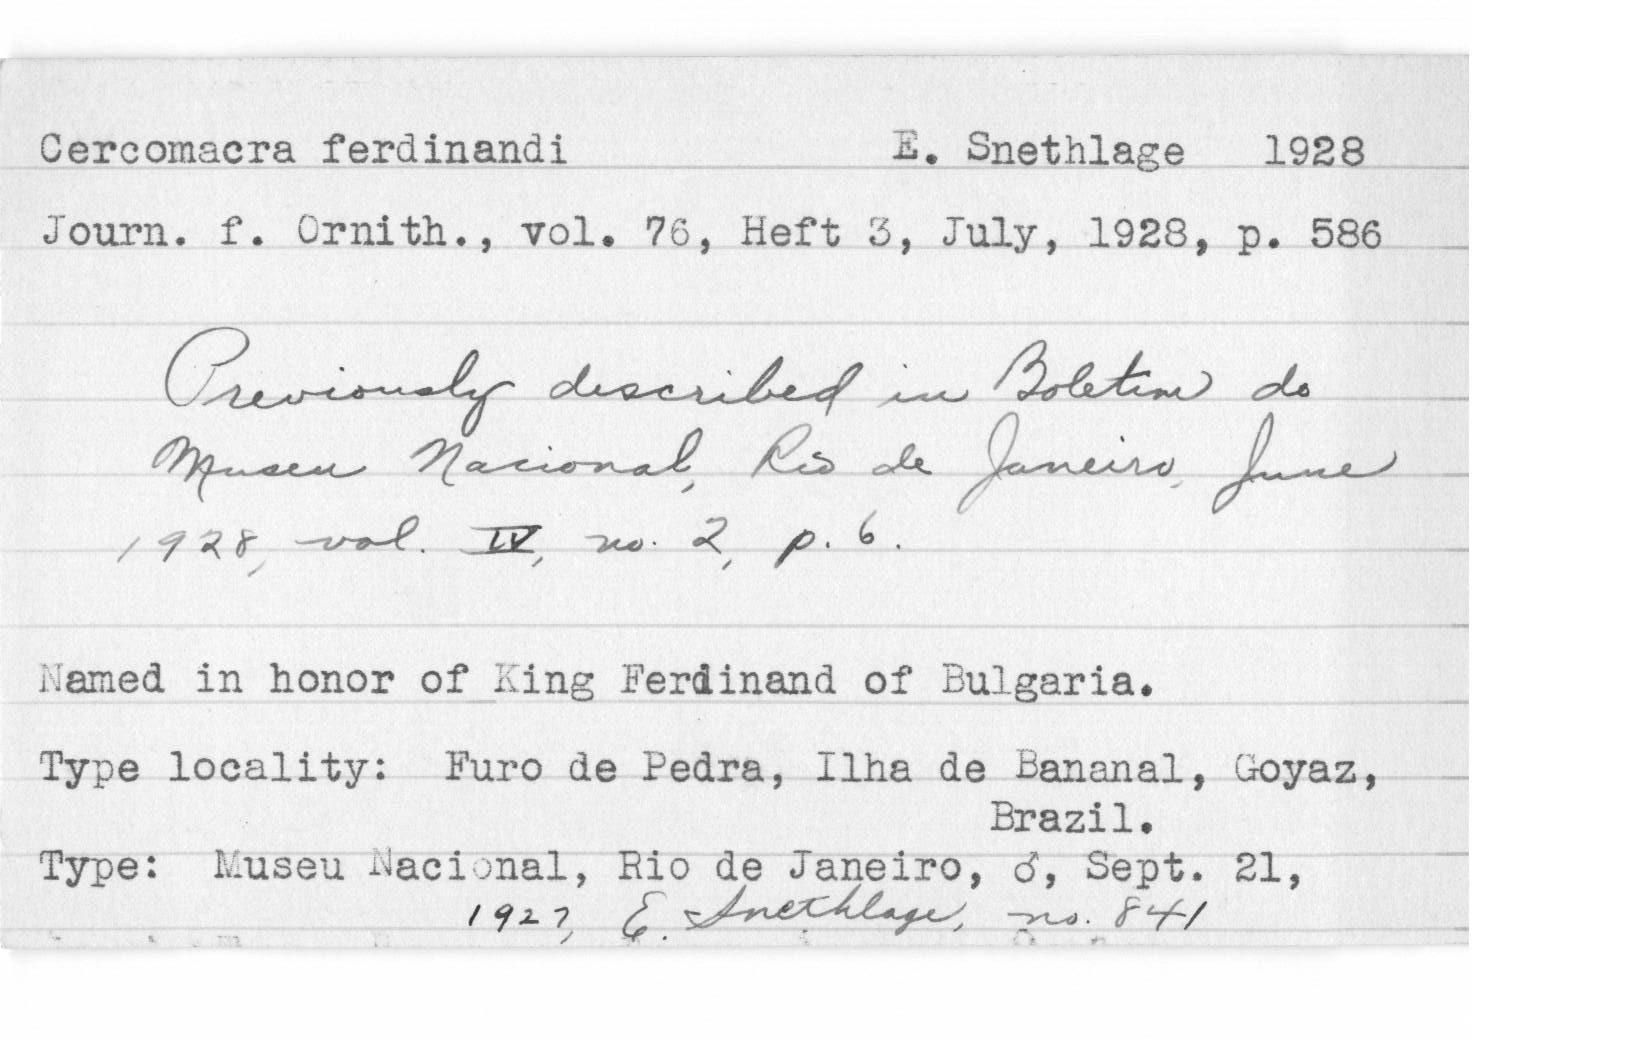 Cercomacra ferdinandi E. Snethlage 1928
Journ. f. Ornith., vol. 76, Heft 3, July, 1928, p. 586
Previously described in Boletim do
Museu Nacional, Rio de Janeiro, June
1928, vol. IV, no. 2, p. 6.
Named in honor of King Ferdinand of Bulgaria.
Type locality: Furo de Pedra, Ilha de Bananal, Goyaz,
Brazil.
Type: Museu Nacional, Rio de Janeiro, ♂, Sept. 21,
1927, E. Snethlage, no. 841